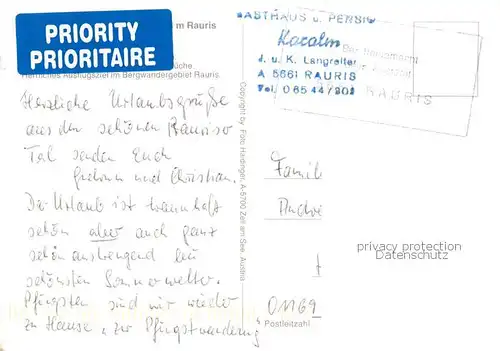 PRIORITY
PRIORITAIRE
m Rauris
Herrliches Ausflugsziel im Bergwandergebiet Rauris
Herzliche Urlaubsgrüße
aus dem schönen Rauriser
Tal senden Euch
und Christian.
Der Urlaub ist traumhaft
schön aber auch ganz
schön anstrengend bei
schönstem Sommerwetter.
Pfingsten sind wir wieder
zu Hause „zur Pfingstwanderung"
Copyright by Foto Haidinger, A-5700 Zell am See, Austria
GASTHAUS u. PENSIO
J. u. K. Langreiter
A 5661 RAURIS
Tel. 0 65 44/202
RAURIS
Famil
Andre
privacy protection
Datenschutz
01169
Postleitzahl